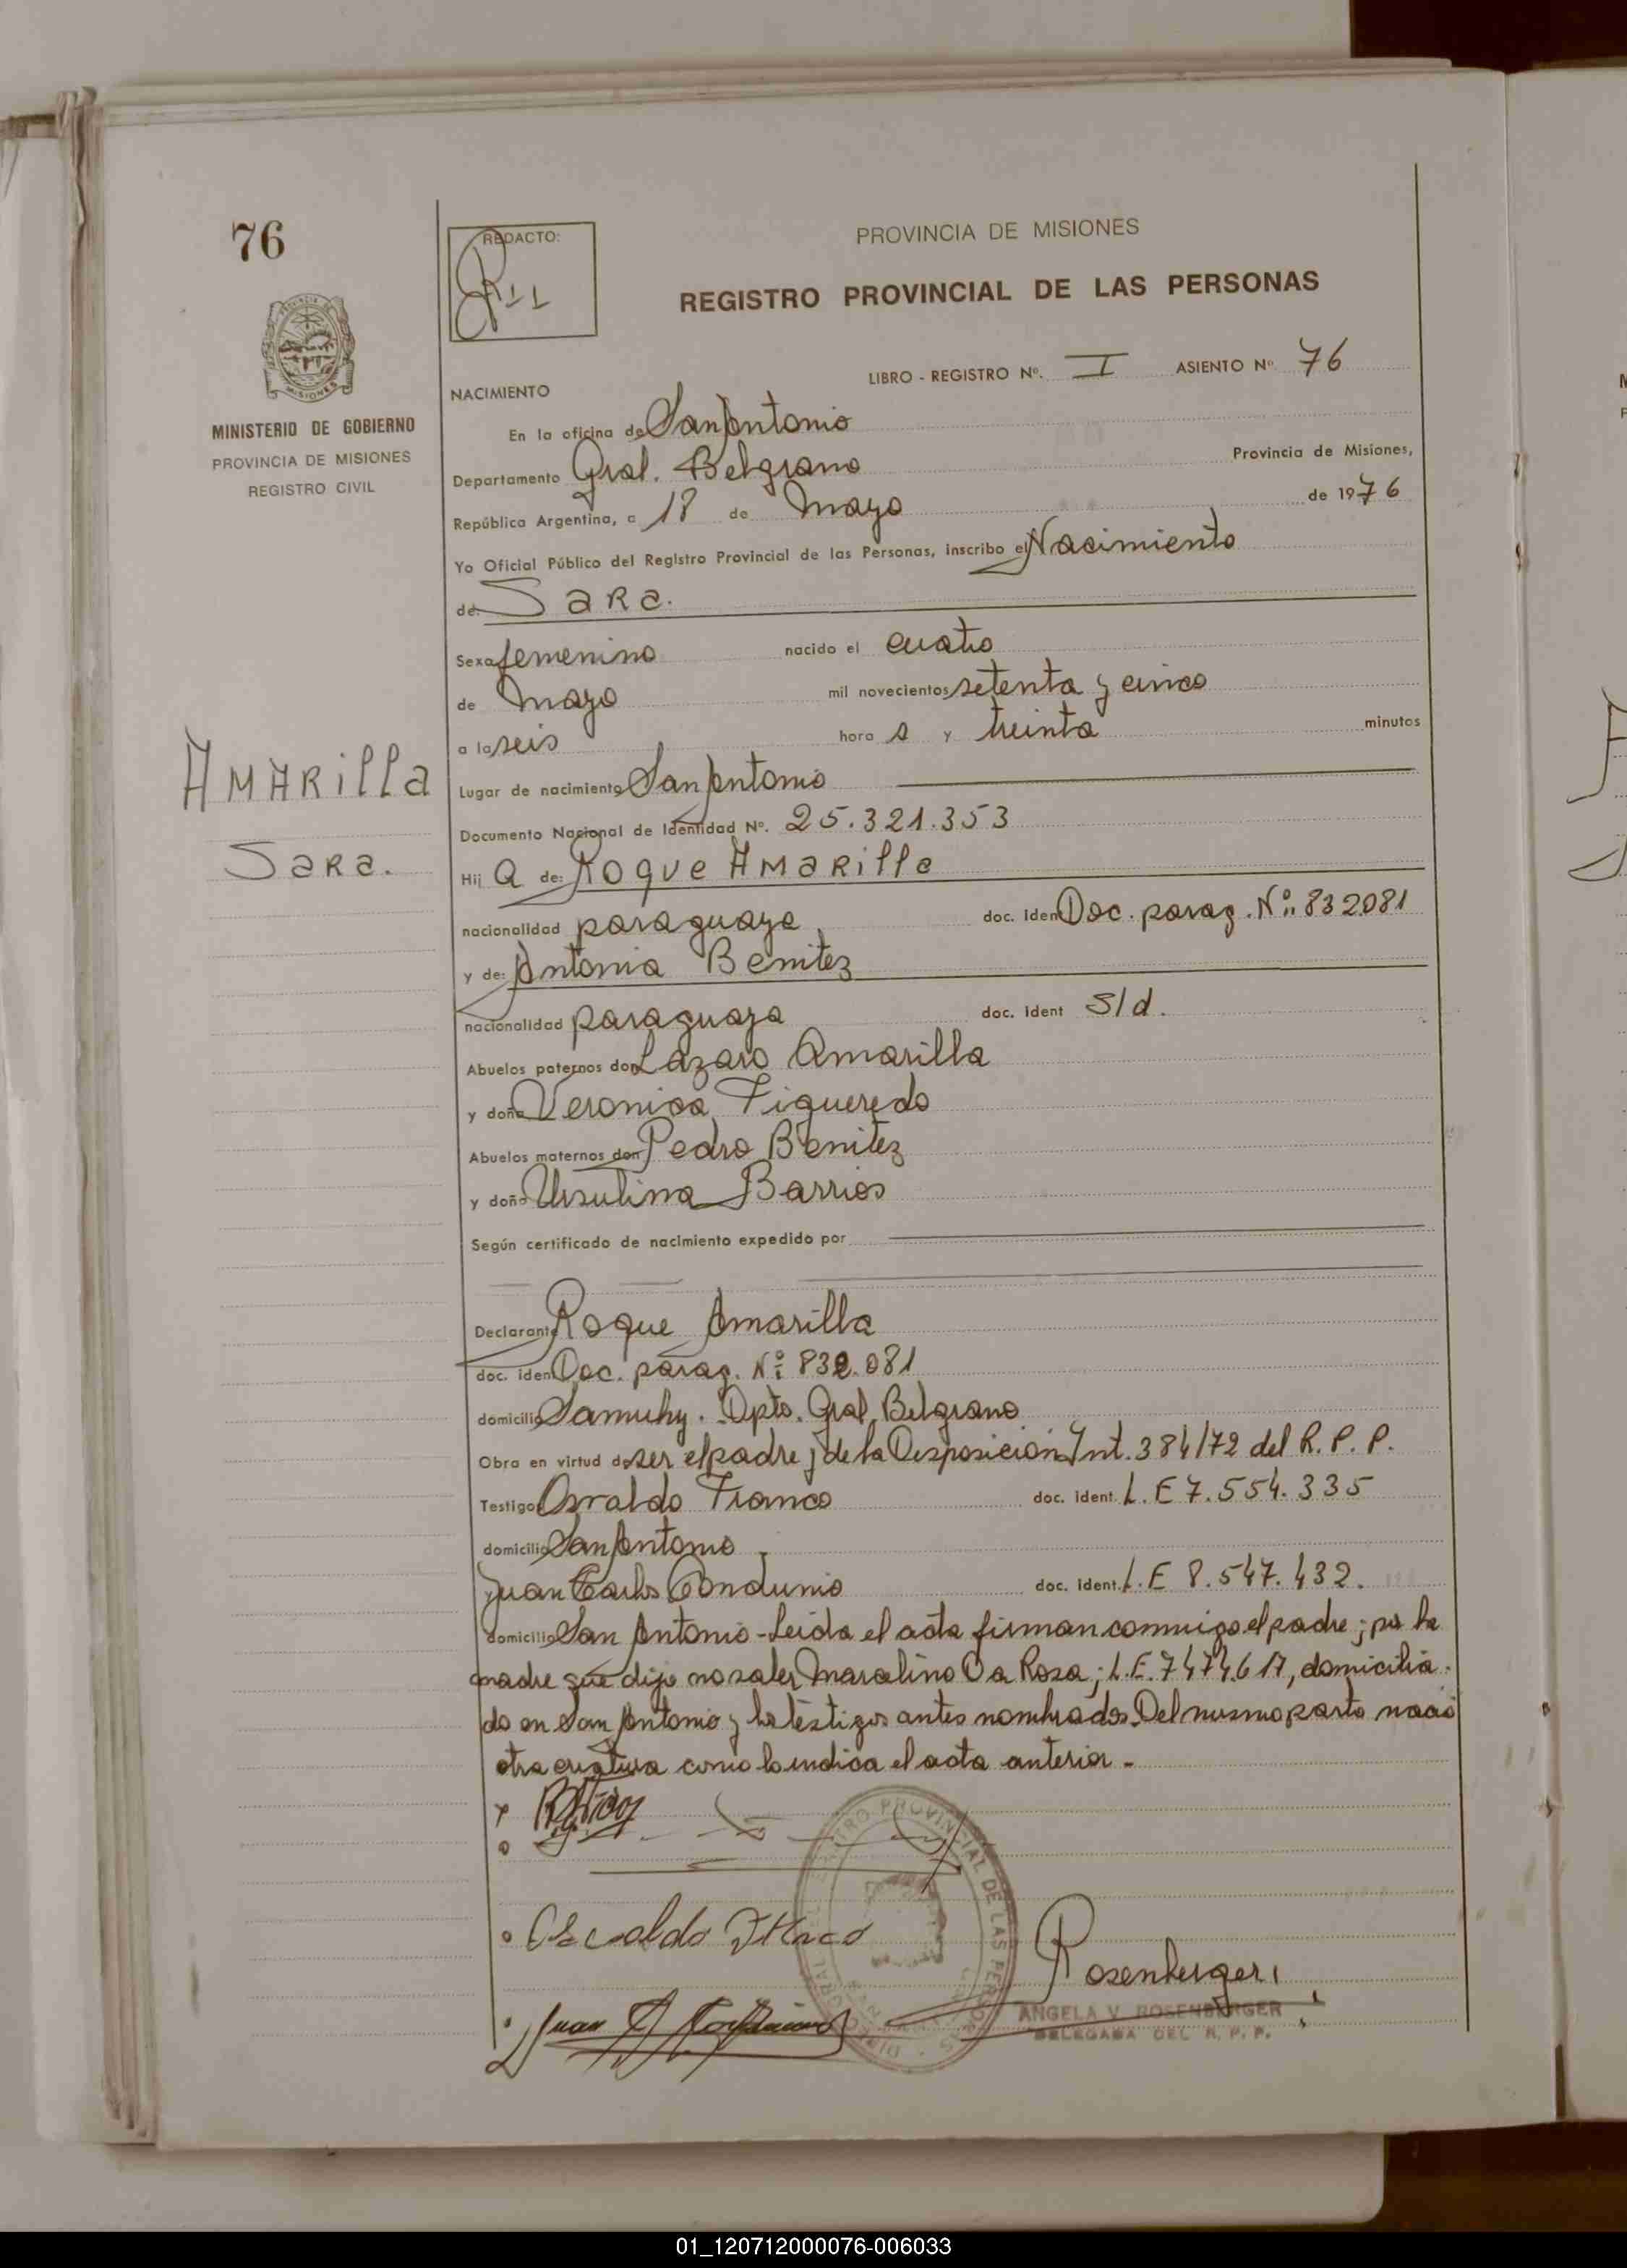 76
REDACTO:
PROVINCIA DE MISIONES
REGISTRO PROVINCIAL DE LAS PERSONAS
LIBRO - REGISTRO Nº. I ASIENTO Nº 76
MINISTERIO DE GOBIERNO
PROVINCIA DE MISIONES
REGISTRO CIVIL
NACIMIENTO
En la oficina de San Antonio
Departamento Gral. Belgrano Provincia de Misiones,
República Argentina, a 18 de Mayo de 1976
Yo Oficial Público del Registro Provincial de las Personas, inscribo el Nacimiento
de: Sara.
Sexo femenino nacido el cuatro
de Mayo mil novecientos setenta y cinco
a la seis hora s y treinta minutos
Amarilla
Sara.
Lugar de nacimiento San Antonio
Documento Nacional de Identidad Nº. 25.321.353
Hij a de: Roque Amarilla
nacionalidad paraguaya doc. iden Doc. parag. Nº: 832081
y de: Antonia Benitez
nacionalidad paraguaya doc. ident S/d.
Abuelos paternos don Lazaro Amarilla
y doña Veronica Figueredo
Abuelos maternos don Pedro Benitez
y doña Ursulina Barrios
Según certificado de nacimiento expedido por
Declarante Roque Amarilla
doc. iden Doc. parag. Nº: 832.081
domicilio Samuhy. Dpto. Gral. Belgrano
Obra en virtud de ser el padre y de la Disposición Int. 384/72 del R. P. P.
Testigo Osvaldo Franco doc. ident. L. E 7.554.335
domicilio San Antonio
Juan Carlos Condunio doc. ident. L. E 8.547.432.
domicilio San Antonio - Leida el acta firman conmigo el padre; por la
madre que dijo no saber Marcelino Da Rosa; L. E. 7474.617, domicilia-
do en San Antonio y los testigos antes nombrados. Del mismo parto nació
otra criatura como lo indica el acta anterior -
Osvaldo
Juan
Rosenberger
ANGELA V. ROSENBERGER
DELEGADA DEL R. P. P.
01_120712000076-006033